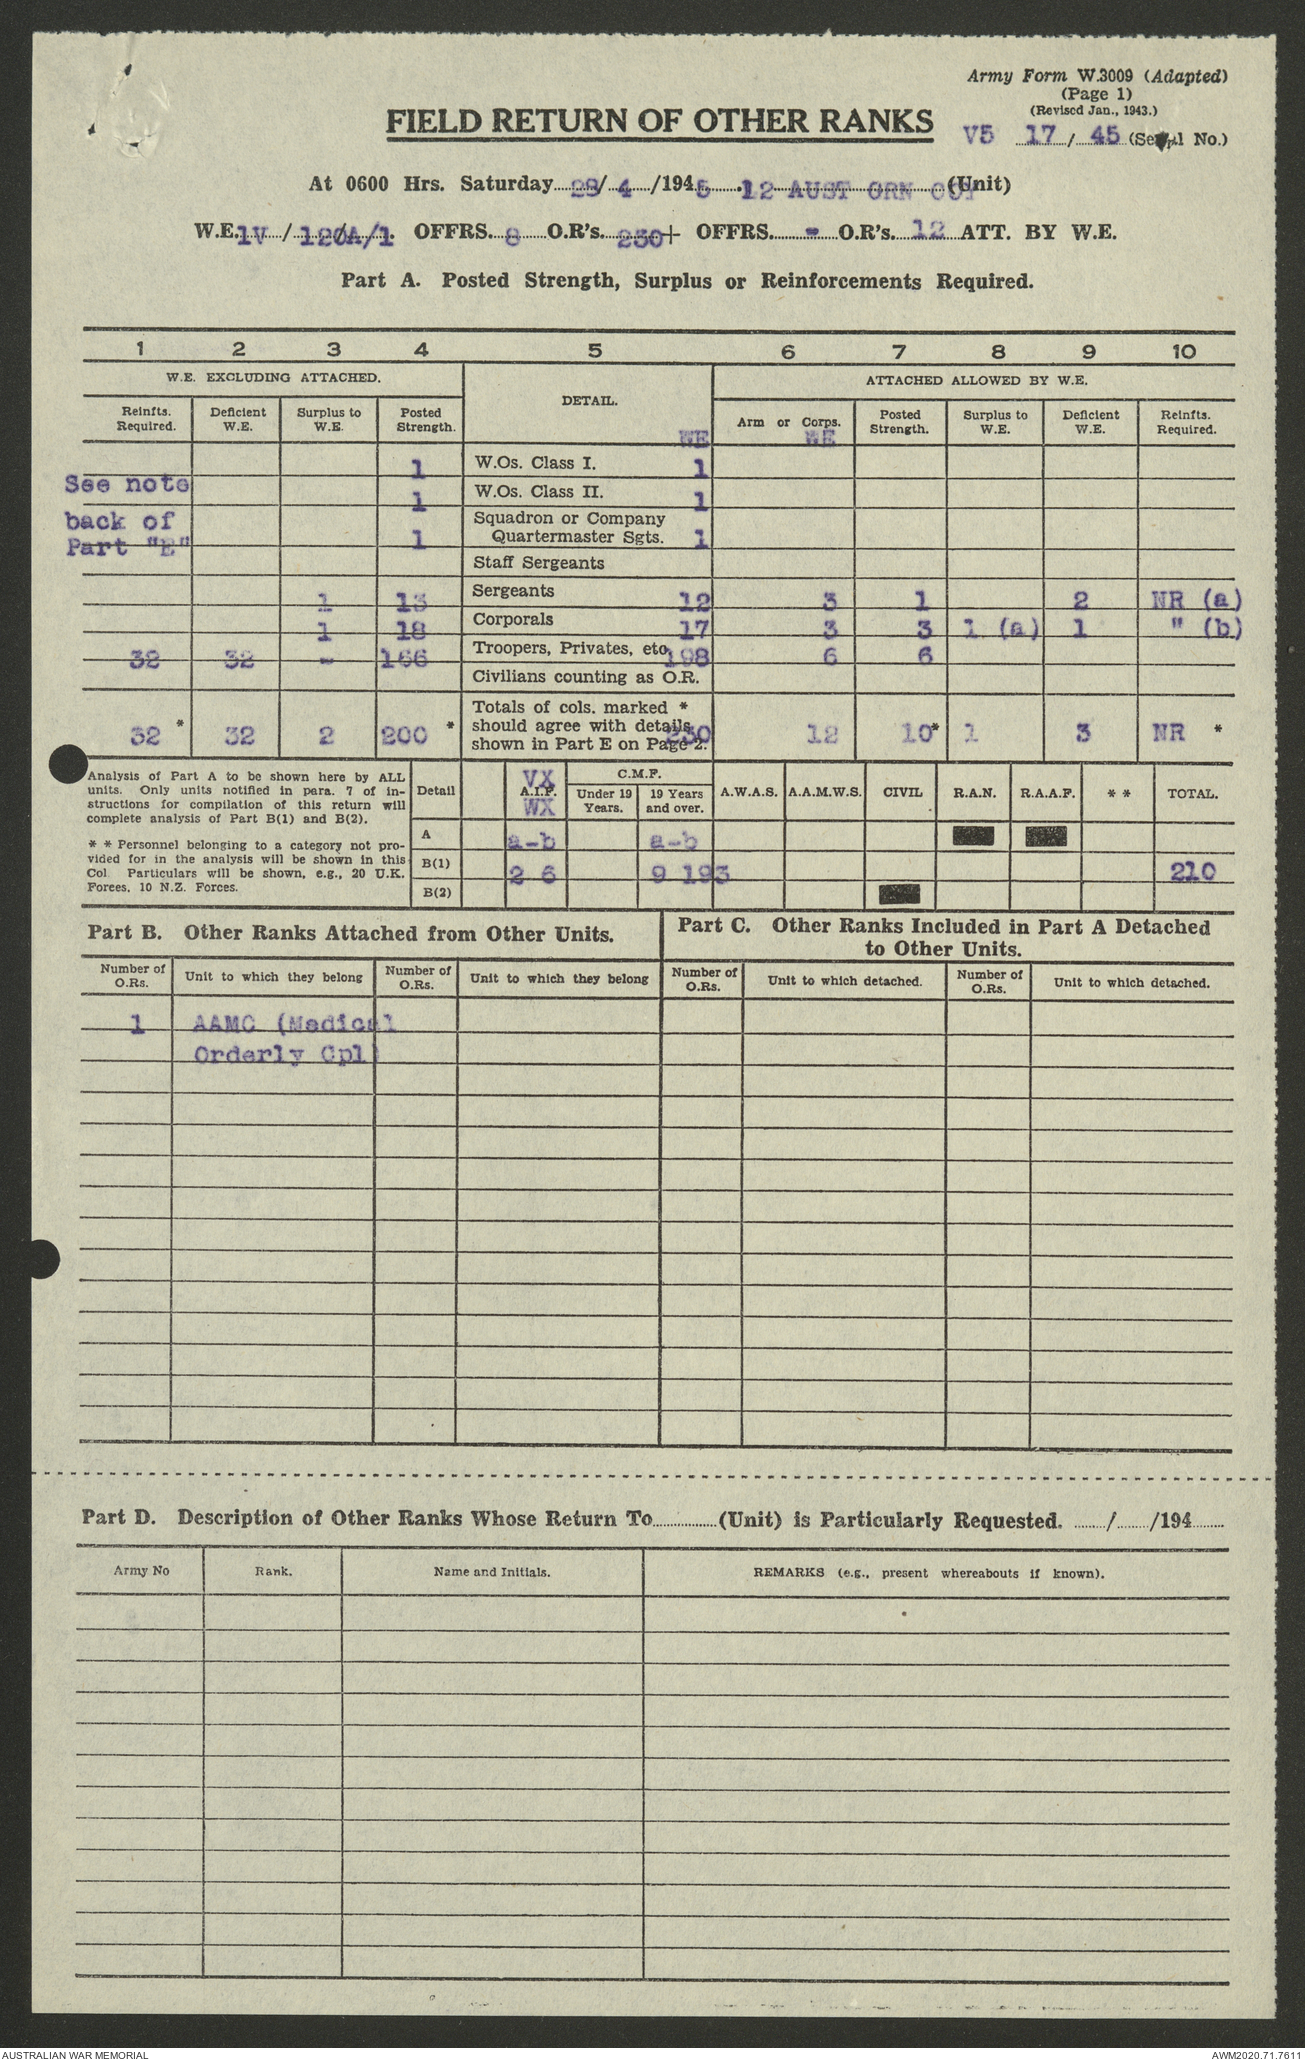 Army Form W.3009 (Adapted)
(Page 1)
(Revised Jan., 1943.)
FIELD RETURN OF OTHER RANKS
V5 17 / 45 (Serial No.)
At 0600 Hrs. Saturday 28/ 4 /1945 12 AUST ORN COY (Unit)
W.E. 1V / 120A/1. OFFRS. 8 O.R's. 230+ OFFRS. - O.R's. 12 ATT. BY W.E.
Part A. Posted Strength, Surplus or Reinforcements Required.
1 2 3 4 5 6 7 8 9 10
W.E. EXCLUDING ATTACHED. DETAIL. ATTACHED ALLOWED BY W.E.
Reinfts. Required. Deficient W.E. Surplus to W.E. Posted Strength. WE Arm or Corps. WE Posted Strength. Surplus to W.E. Deficient W.E. Reinfts. Required.
1 W.Os. Class I. 1
See note
1 W.Os. Class II. 1
back of Squadron or Company
Part "E" 1 Quartermaster Sgts. 1
Staff Sergeants
1 13 Sergeants 12 3 1 2 NR (a)
1 18 Corporals 17 3 3 1 (a) 1 " (b)
32 32 - 166 Troopers, Privates, etc. 198 6 6
Civilians counting as O.R.
Totals of cols. marked *
should agree with details
32 * 32 2 200 * shown in Part E on Page 2. 230 12 10* 1 3 NR *
Analysis of Part A to be shown here by ALL
units. Only units notified in para. 7 of in-
structions for compilation of this return will
complete analysis of Part B(1) and B(2).
* * Personnel belonging to a category not pro-
vided for in the analysis will be shown in this
Col Particulars will be shown, e.g., 20 U.K.
Forces, 10 N.Z. Forces.
Detail VX A.I.F. WX C.M.F. Under 19 Years. 19 Years and over. A.W.A.S. A.A.M.W.S. CIVIL R.A.N. R.A.A.F. * * TOTAL.
A a-b a-b
B(1) 2 6 9 193 210
B(2)
Part B. Other Ranks Attached from Other Units.
Part C. Other Ranks Included in Part A Detached
to Other Units.
Number of O.Rs. Unit to which they belong Number of O.Rs. Unit to which they belong Number of O.Rs. Unit to which detached. Number of O.Rs. Unit to which detached.
1 AAMC (Medical
Orderly Cpl)
Part D. Description of Other Ranks Whose Return To............(Unit) is Particularly Requested. ....../....../194......
Army No Rank. Name and Initials. REMARKS (e.g., present whereabouts if known).
AUSTRALIAN WAR MEMORIAL AWM2020.71.7611